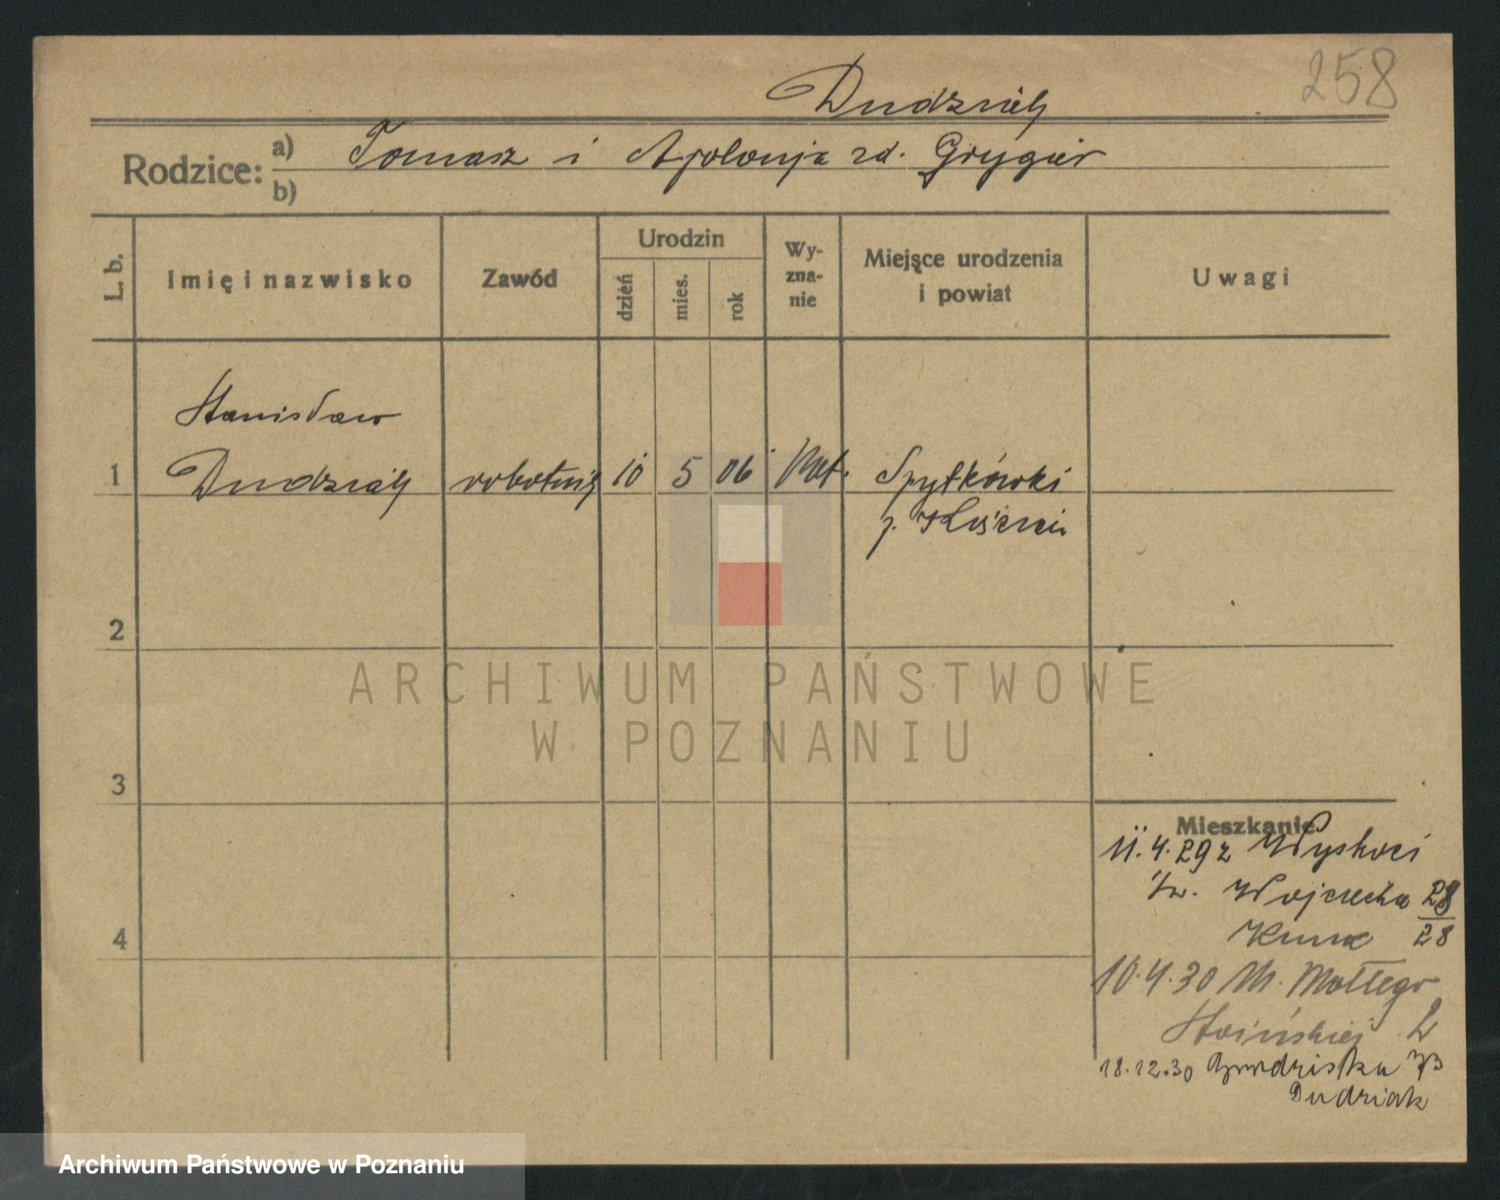 258
Dudziak
Rodzice: a) Tomasz i Apolonja zd. Grygier
b)
L. b. Imię i nazwisko Zawód Urodzin dzień mies. rok Wy-zna-nie Miejsce urodzenia i powiat Uwagi
Stanisław
1 Dudziak robotnik 10 5 06 kat. Spytkówki
p. Kościan
2
3
4
Mieszkanie
11.4.29 z Wyskoci
św. Wojciecha 28
28
10.4.30 M. Mottego
2
18.12.30 Grodziska
Dudziak
ARCHIWUM PAŃSTWOWE
W POZNANIU
Archiwum Państwowe w Poznaniu